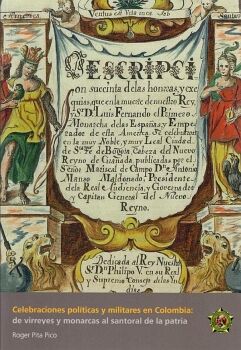 Ventus in Vita mea Job
DESCRIPCI
on succinta de las honras, y exe
quias, que en la muerte de nuestro Rey,
y Sr Dn Luis Fernando el Primero
Monarcha de las Españas, y Empe
rador de esta America Se celebraron
en la muy Noble, y muy Leal Ciudad
de Sta Fe de Bogota Cabeza del Nuevo
Reyno de Granada publicadas por el
Señor Mariscal de Campo Dn Antonio
Manso Maldonado, Presidente
de la Real Audiencia, y Governador
y Capitan General del Nuevo
Reyno.
Dedicada al Rey Nuestro
Sr Dn Philipo V. en su Real
y Supremo Consejo de las Ind
Celebraciones políticas y militares en Colombia:
de virreyes y monarcas al santoral de la patria
Roger Pita Pico